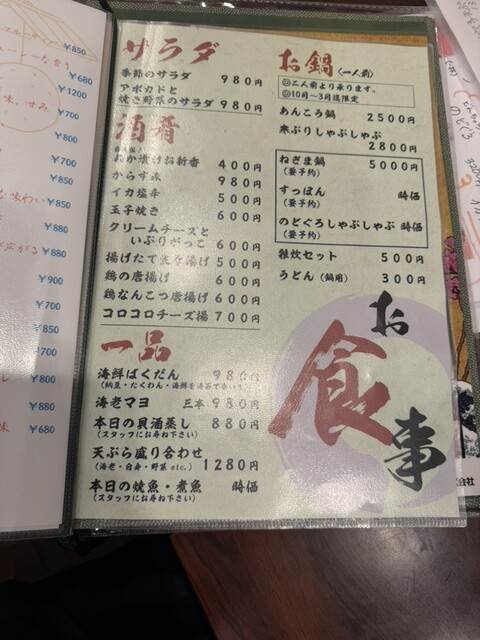 サラダ
季節のサラダ 980円
アボカドと
焼き野菜のサラダ 980円
酒肴
ぬか漬けお新香 400円
からすみ 980円
イカ塩辛 500円
玉子焼き 600円
クリームチーズと
いぶりがっこ 600円
揚げたて 揚げ 500円
鶏の唐揚げ 600円
鶏なんこつ唐揚げ 600円
コロコロチーズ揚 700円
一品
海鮮ばくだん 980円
(納豆・たくわん・海鮮を海苔で
海老マヨ 三本 980円
本日の貝酒蒸し 880円
(スタッフにお尋ね下さい)
天ぷら盛り合わせ 1280円
(海老・白身・野菜 etc.)
本日の焼魚・煮魚 時価
(スタッフにお尋ね下さい)
お鍋 〈一人前〉
◎二人前より承ります。
◎10月〜3月迄限定
あんこう鍋 2500円
寒ぶりしゃぶしゃぶ
2800円
ねぎま鍋 5000円
(要予約)
すっぽん 時価
(要予約)
のどぐろしゃぶしゃぶ 時価
(要予約)
雑炊セット 500円
うどん (鍋用) 300円
お食事
¥850
¥680
¥1200
¥700
¥800
¥700
¥850
¥850
¥880
¥880
¥900
¥700
¥850
¥700
¥880
¥800
¥680
のどぐろ
式会社